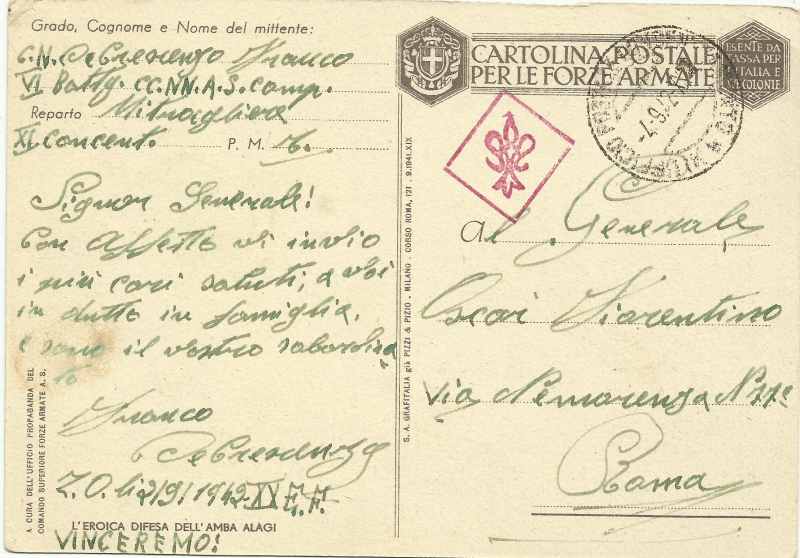 Grado, Cognome e Nome del mittente:
C.N. De Crescenzo Franco
VI Battg. CC.NN. A.S. Comp.
Reparto Mitragliera
XI Concent. P. M.
Signor Generale!
Con Affetto vi invio
i miei cari saluti, a voi
in tutto in famiglia,
e sono il vostro subordina
to
Franco
De Crescenzo
Z.O. li 2/9/1942-XX E.F.
L'EROICA DIFESA DELL'AMBA ALAGI
VINCEREMO!
A CURA DELL'UFFICIO PROPAGANDA DEL
COMANDO SUPERIORE FORZE ARMATE A. S.
S. A. GRAFITALIA già PIZZI & PIZIO - MILANO - CORSO ROMA, 121 - 9.1941.XIX
CARTOLINA POSTALE
PER LE FORZE ARMATE
ESENTE DA
TASSA PER
ITALIA E
COLONIE
Al Generale
Oscar Fiorentino
Via Nemorenza N 77e
Roma